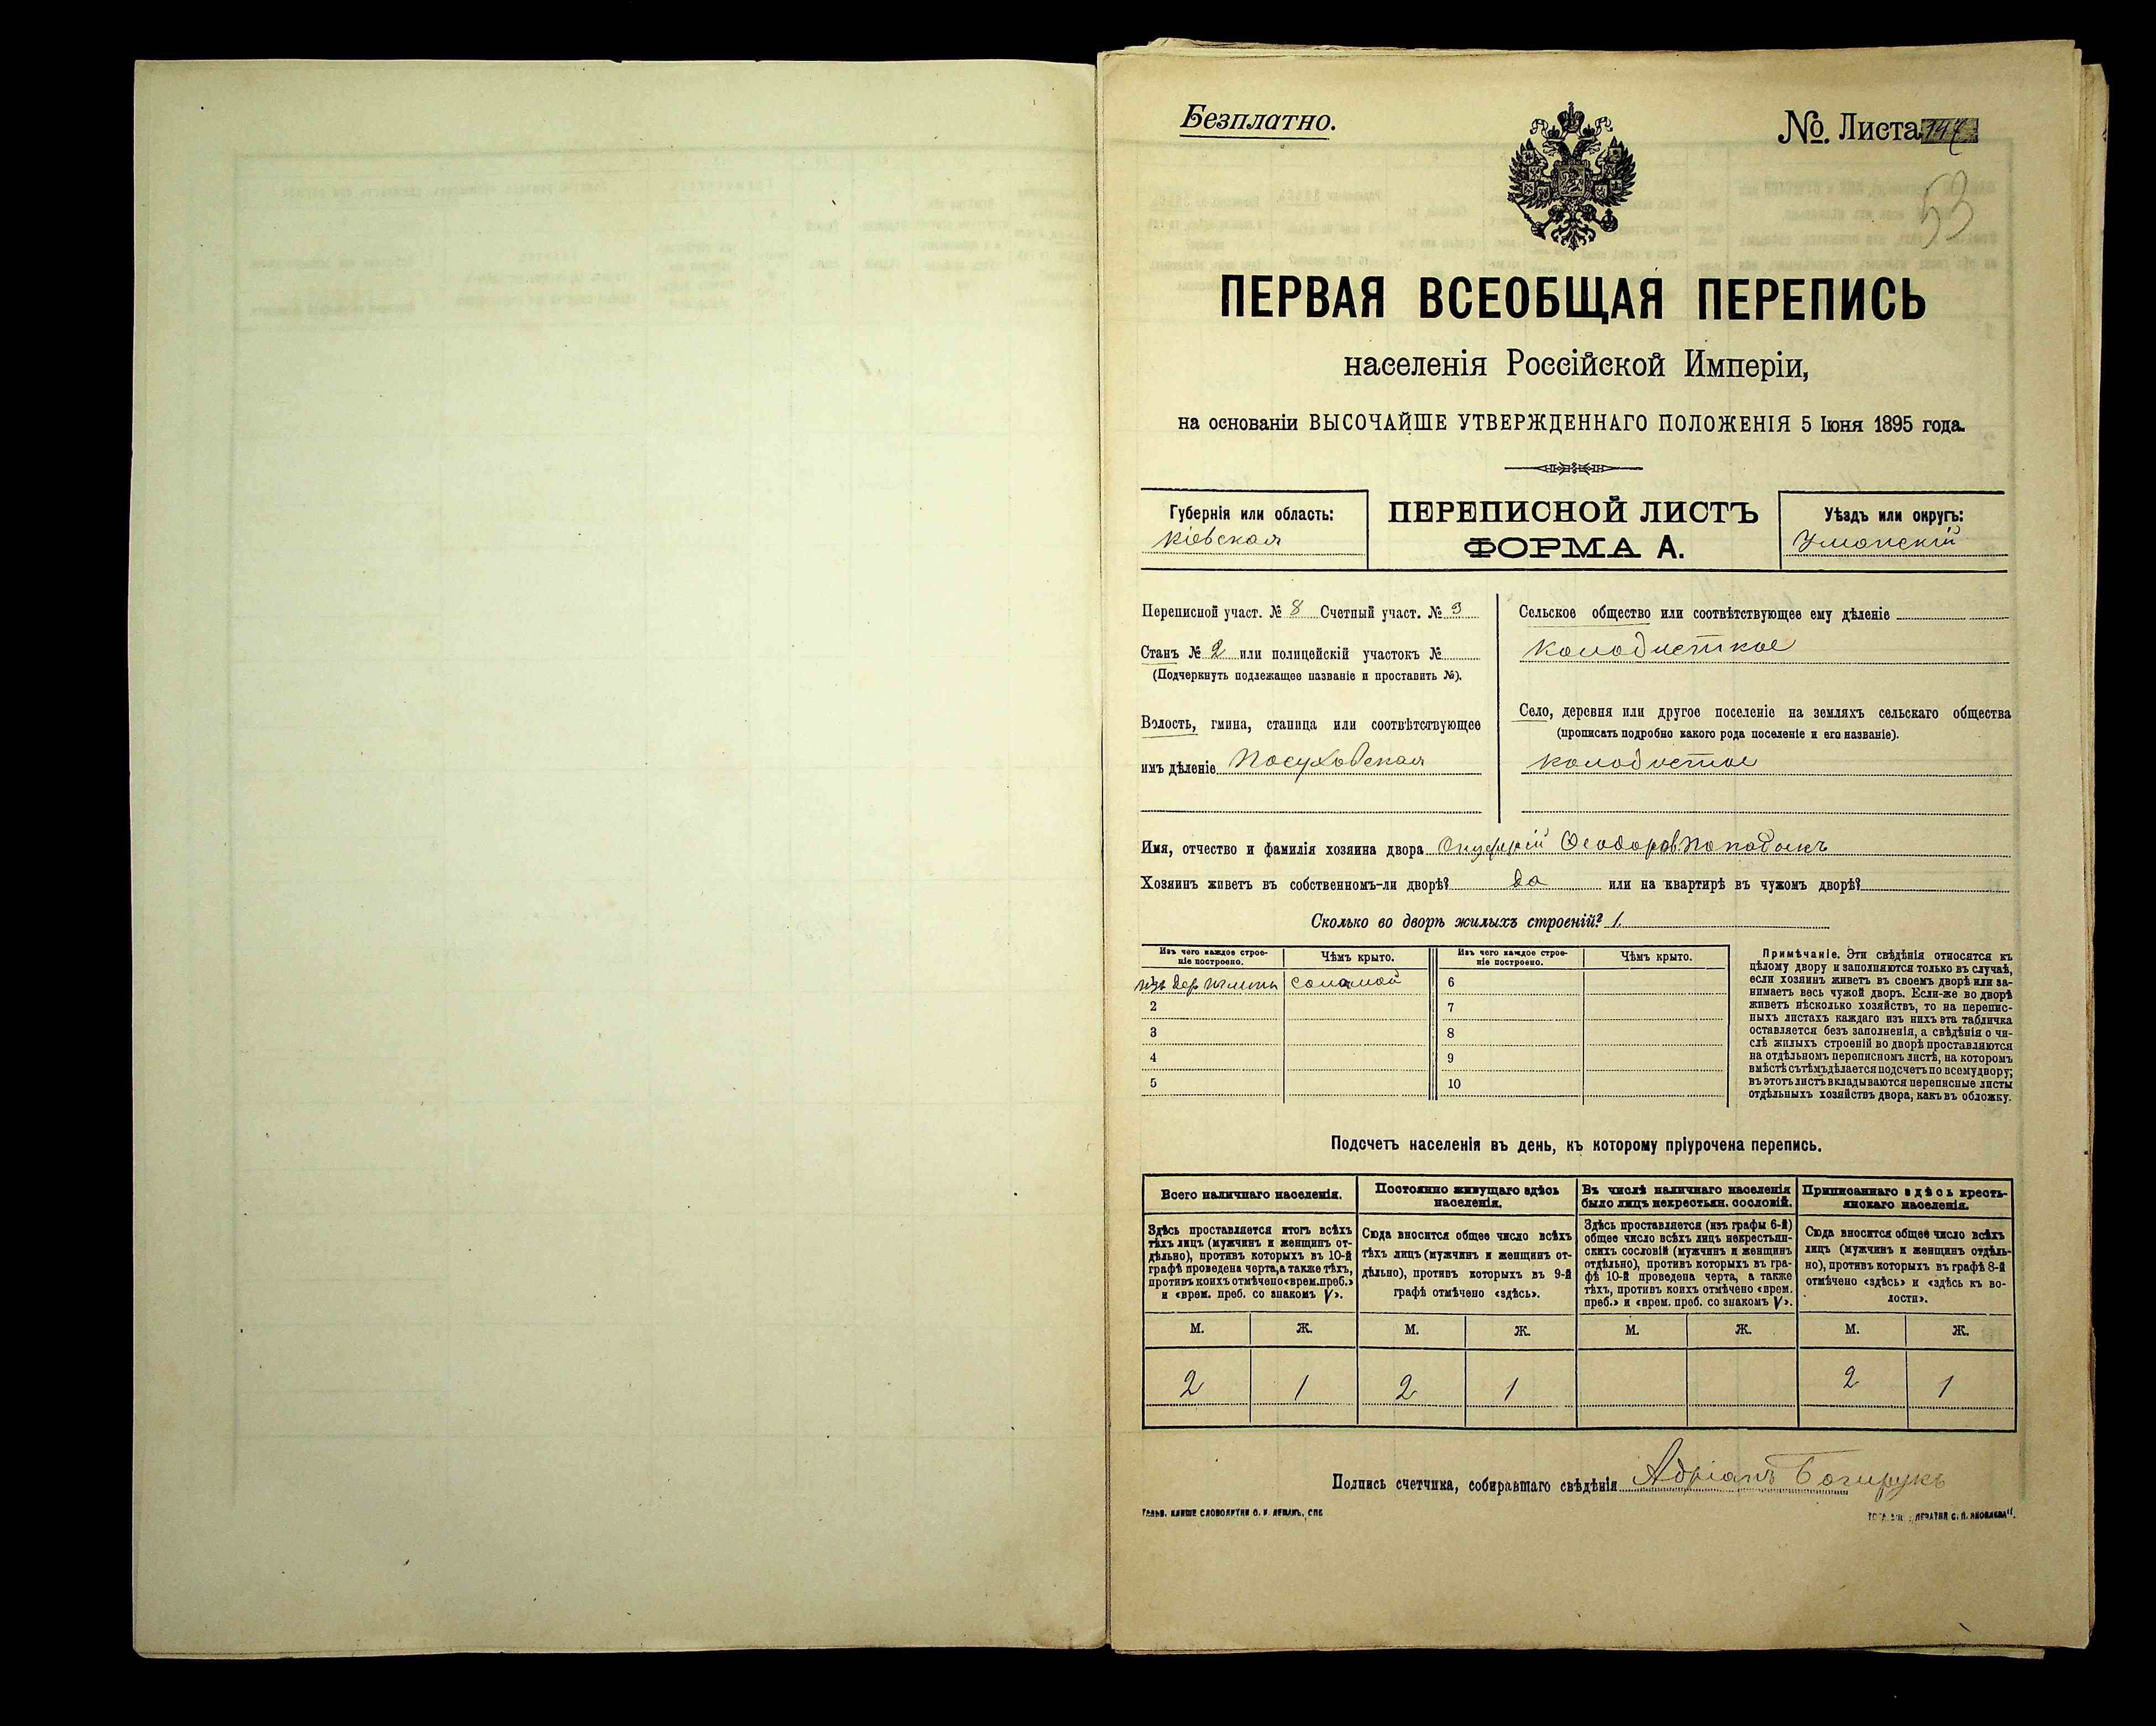 Безплатно.
№ Листа 147
53
ПЕРВАЯ ВСЕОБЩАЯ ПЕРЕПИСЬ
населенія Россійской Имперіи,
на основаніи ВЫСОЧАЙШЕ УТВЕРЖДЕННАГО ПОЛОЖЕНІЯ 5 Іюня 1895 года.
Губернія или область:
Кіевская
ПЕРЕПИСНОЙ ЛИСТЪ
ФОРМА А.
Уѣздъ или округъ:
Уманскій
Переписной участ. № 8 Счетный участ. № 9
Станъ № 2 или полицейскій участокъ №
(Подчеркнуть подлежащее названіе и проставить №).
Волость, гмина, станица или соотвѣтствующее
имъ дѣленіе Посуховская
Сельское общество или соотвѣтствующее ему дѣленіе
Колодисткое
Село, деревня или другое поселеніе на земляхъ сельскаго общества
(прописать подробно какого рода поселеніе и его названіе).
Колодистое
Имя, отчество и фамилія хозяина двора Онуфрій Феодоров
Хозяинъ живетъ въ собственномъ-ли дворѣ? да или на квартирѣ въ чужомъ дворѣ?
Сколько во дворѣ жилыхъ строеній? 1.
Изъ чего каждое строе-
ніе построено.
Чѣмъ крыто.
Изъ чего каждое строе-
ніе построено.
Чѣмъ крыто.
изъ дер глины соломой 6
2 7
3 8
4 9
5 10
Примѣчаніе. Эти свѣдѣнія относятся къ
цѣлому двору и заполняются только въ случаѣ,
если хозяинъ живетъ въ своемъ дворѣ или за-
нимаетъ весь чужой дворъ. Если-же во дворѣ
живетъ нѣсколько хозяйствъ, то на перепис-
ныхъ листахъ каждаго изъ нихъ эта табличка
оставляется безъ заполненія, а свѣдѣнія о чи-
слѣ жилыхъ строеній во дворѣ проставляются
на отдѣльномъ переписномъ листѣ, на которомъ
вмѣстѣ съ тѣмъ дѣлается подсчетъ по всему двору;
въ этотъ листъ вкладываются переписные листы
отдѣльныхъ хозяйствъ двора, какъ въ обложку.
Подсчетъ населенія въ день, къ которому пріурочена перепись.
Всего наличнаго населенія.
Здѣсь проставляется итогъ всѣхъ
тѣхъ лицъ (мужчинъ и женщинъ от-
дѣльно), противъ которыхъ въ 10-й
графѣ проведена черта, а также тѣхъ,
противъ коихъ отмѣчено «врем. преб.»
и «врем. преб. со знакомъ V».
Постоянно живущаго здѣсь
населенія.
Сюда вносится общее число всѣхъ
тѣхъ лицъ (мужчинъ и женщинъ от-
дѣльно), противъ которыхъ въ 9-й
графѣ отмѣчено «здѣсь».
Въ числѣ наличнаго населенія
было лицъ некрестьян. сословій.
Здѣсь проставляется (изъ графы 6-й)
общее число всѣхъ лицъ некрестьян-
скихъ сословій (мужчинъ и женщинъ
отдѣльно), противъ которыхъ въ гра-
фѣ 10-й проведена черта, а также
тѣхъ, противъ коихъ отмѣчено «врем.
преб.» и «врем. преб. со знакомъ V».
Приписаннаго здѣсь кресть-
янскаго населенія.
Сюда вносится общее число всѣхъ
лицъ (мужчинъ и женщинъ отдѣль-
но), противъ которыхъ въ графѣ 8-й
отмѣчено «здѣсь» и «здѣсь къ во-
лости».
М. Ж. М. Ж. М. Ж. М. Ж.
2 1 2 1 2 1
Подпись счетчика, собиравшаго свѣдѣнія Адріанъ